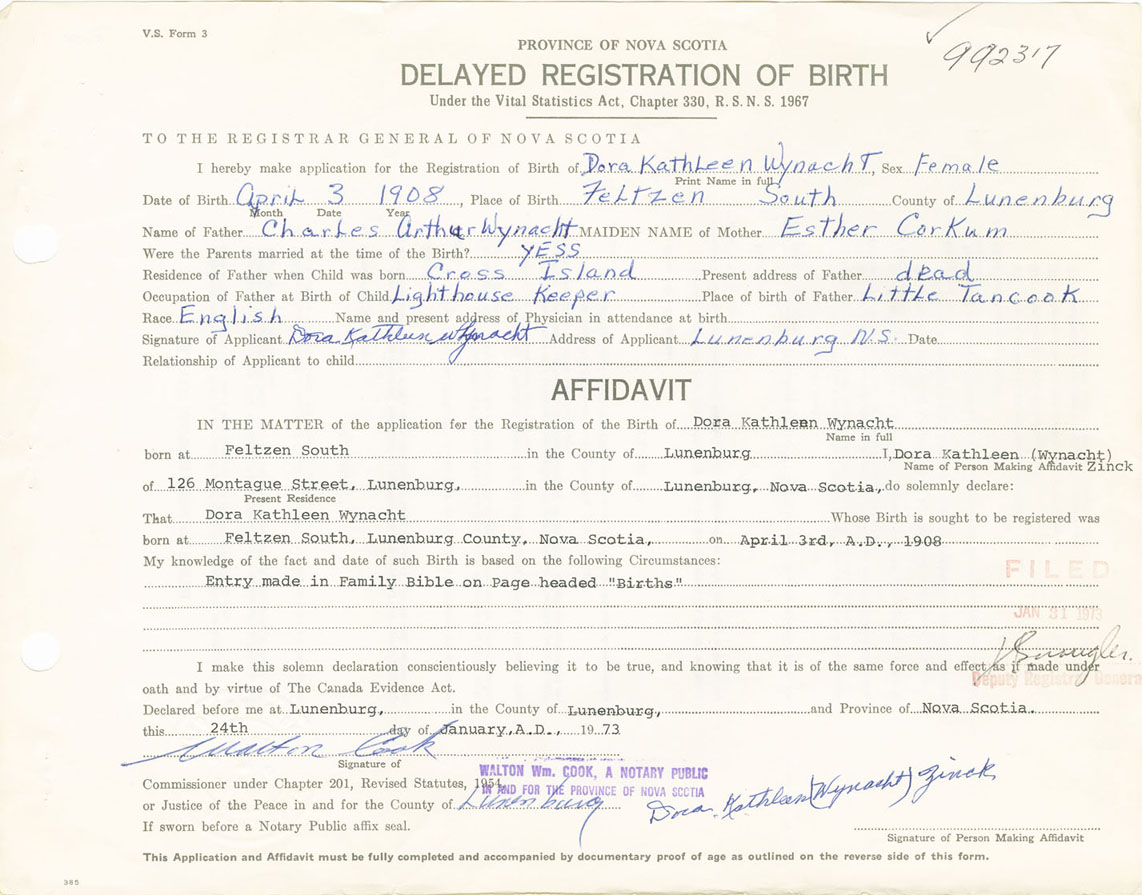 V.S. Form 3
992317
PROVINCE OF NOVA SCOTIA
DELAYED REGISTRATION OF BIRTH
Under the Vital Statistics Act, Chapter 330, R.S.N.S. 1967
TO THE REGISTRAR GENERAL OF NOVA SCOTIA
I hereby make application for the Registration of Birth of Dora Kathleen Wynacht, Sex Female
Print Name in full
Date of Birth April 3 1908, Place of Birth Feltzen South County of Lunenburg
Month Date Year
Name of Father Charles Arthur Wynacht MAIDEN NAME of Mother Esther Corkum
Were the Parents married at the time of the Birth? YESS
Residence of Father when Child was born Cross Island Present address of Father dead
Occupation of Father at Birth of Child Lighthouse Keeper Place of birth of Father Little Tancook
Race English Name and present address of Physician in attendance at birth
Signature of Applicant Dora Kathleen Wynacht Address of Applicant Lunenburg N.S. Date
Relationship of Applicant to child
AFFIDAVIT
IN THE MATTER of the application for the Registration of the Birth of Dora Kathleen Wynacht
Name in full
born at Feltzen South in the County of Lunenburg I, Dora Kathleen (Wynacht)
Name of Person Making Affidavit Zinck
of 126 Montague Street, Lunenburg, in the County of Lunenburg, Nova Scotia, do solemnly declare:
Present Residence
That Dora Kathleen Wynacht Whose Birth is sought to be registered was
born at Feltzen South, Lunenburg County, Nova Scotia, on April 3rd, A.D., 1908
My knowledge of the fact and date of such Birth is based on the following Circumstances:
Entry made in Family Bible on Page headed "Births"
FILED
JAN 31 1973
I make this solemn declaration conscientiously believing it to be true, and knowing that it is of the same force and effect as if made under
Deputy Registrar General
oath and by virtue of The Canada Evidence Act.
Declared before me at Lunenburg, in the County of Lunenburg, and Province of Nova Scotia.
this 24th day of January, A.D., 1973
Walton Cook
Signature of
WALTON Wm. COOK, A NOTARY PUBLIC
Commissioner under Chapter 201, Revised Statutes, 1954
IN AND FOR THE PROVINCE OF NOVA SCOTIA
or Justice of the Peace in and for the County of Lunenburg
Dora Kathleen (Wynacht) Zinck
If sworn before a Notary Public affix seal.
Signature of Person Making Affidavit
This Application and Affidavit must be fully completed and accompanied by documentary proof of age as outlined on the reverse side of this form.
385